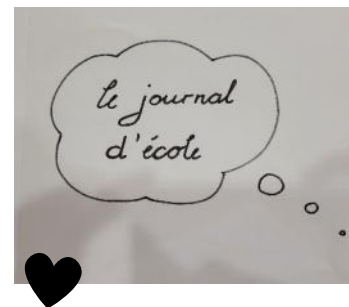 le journal
d'école